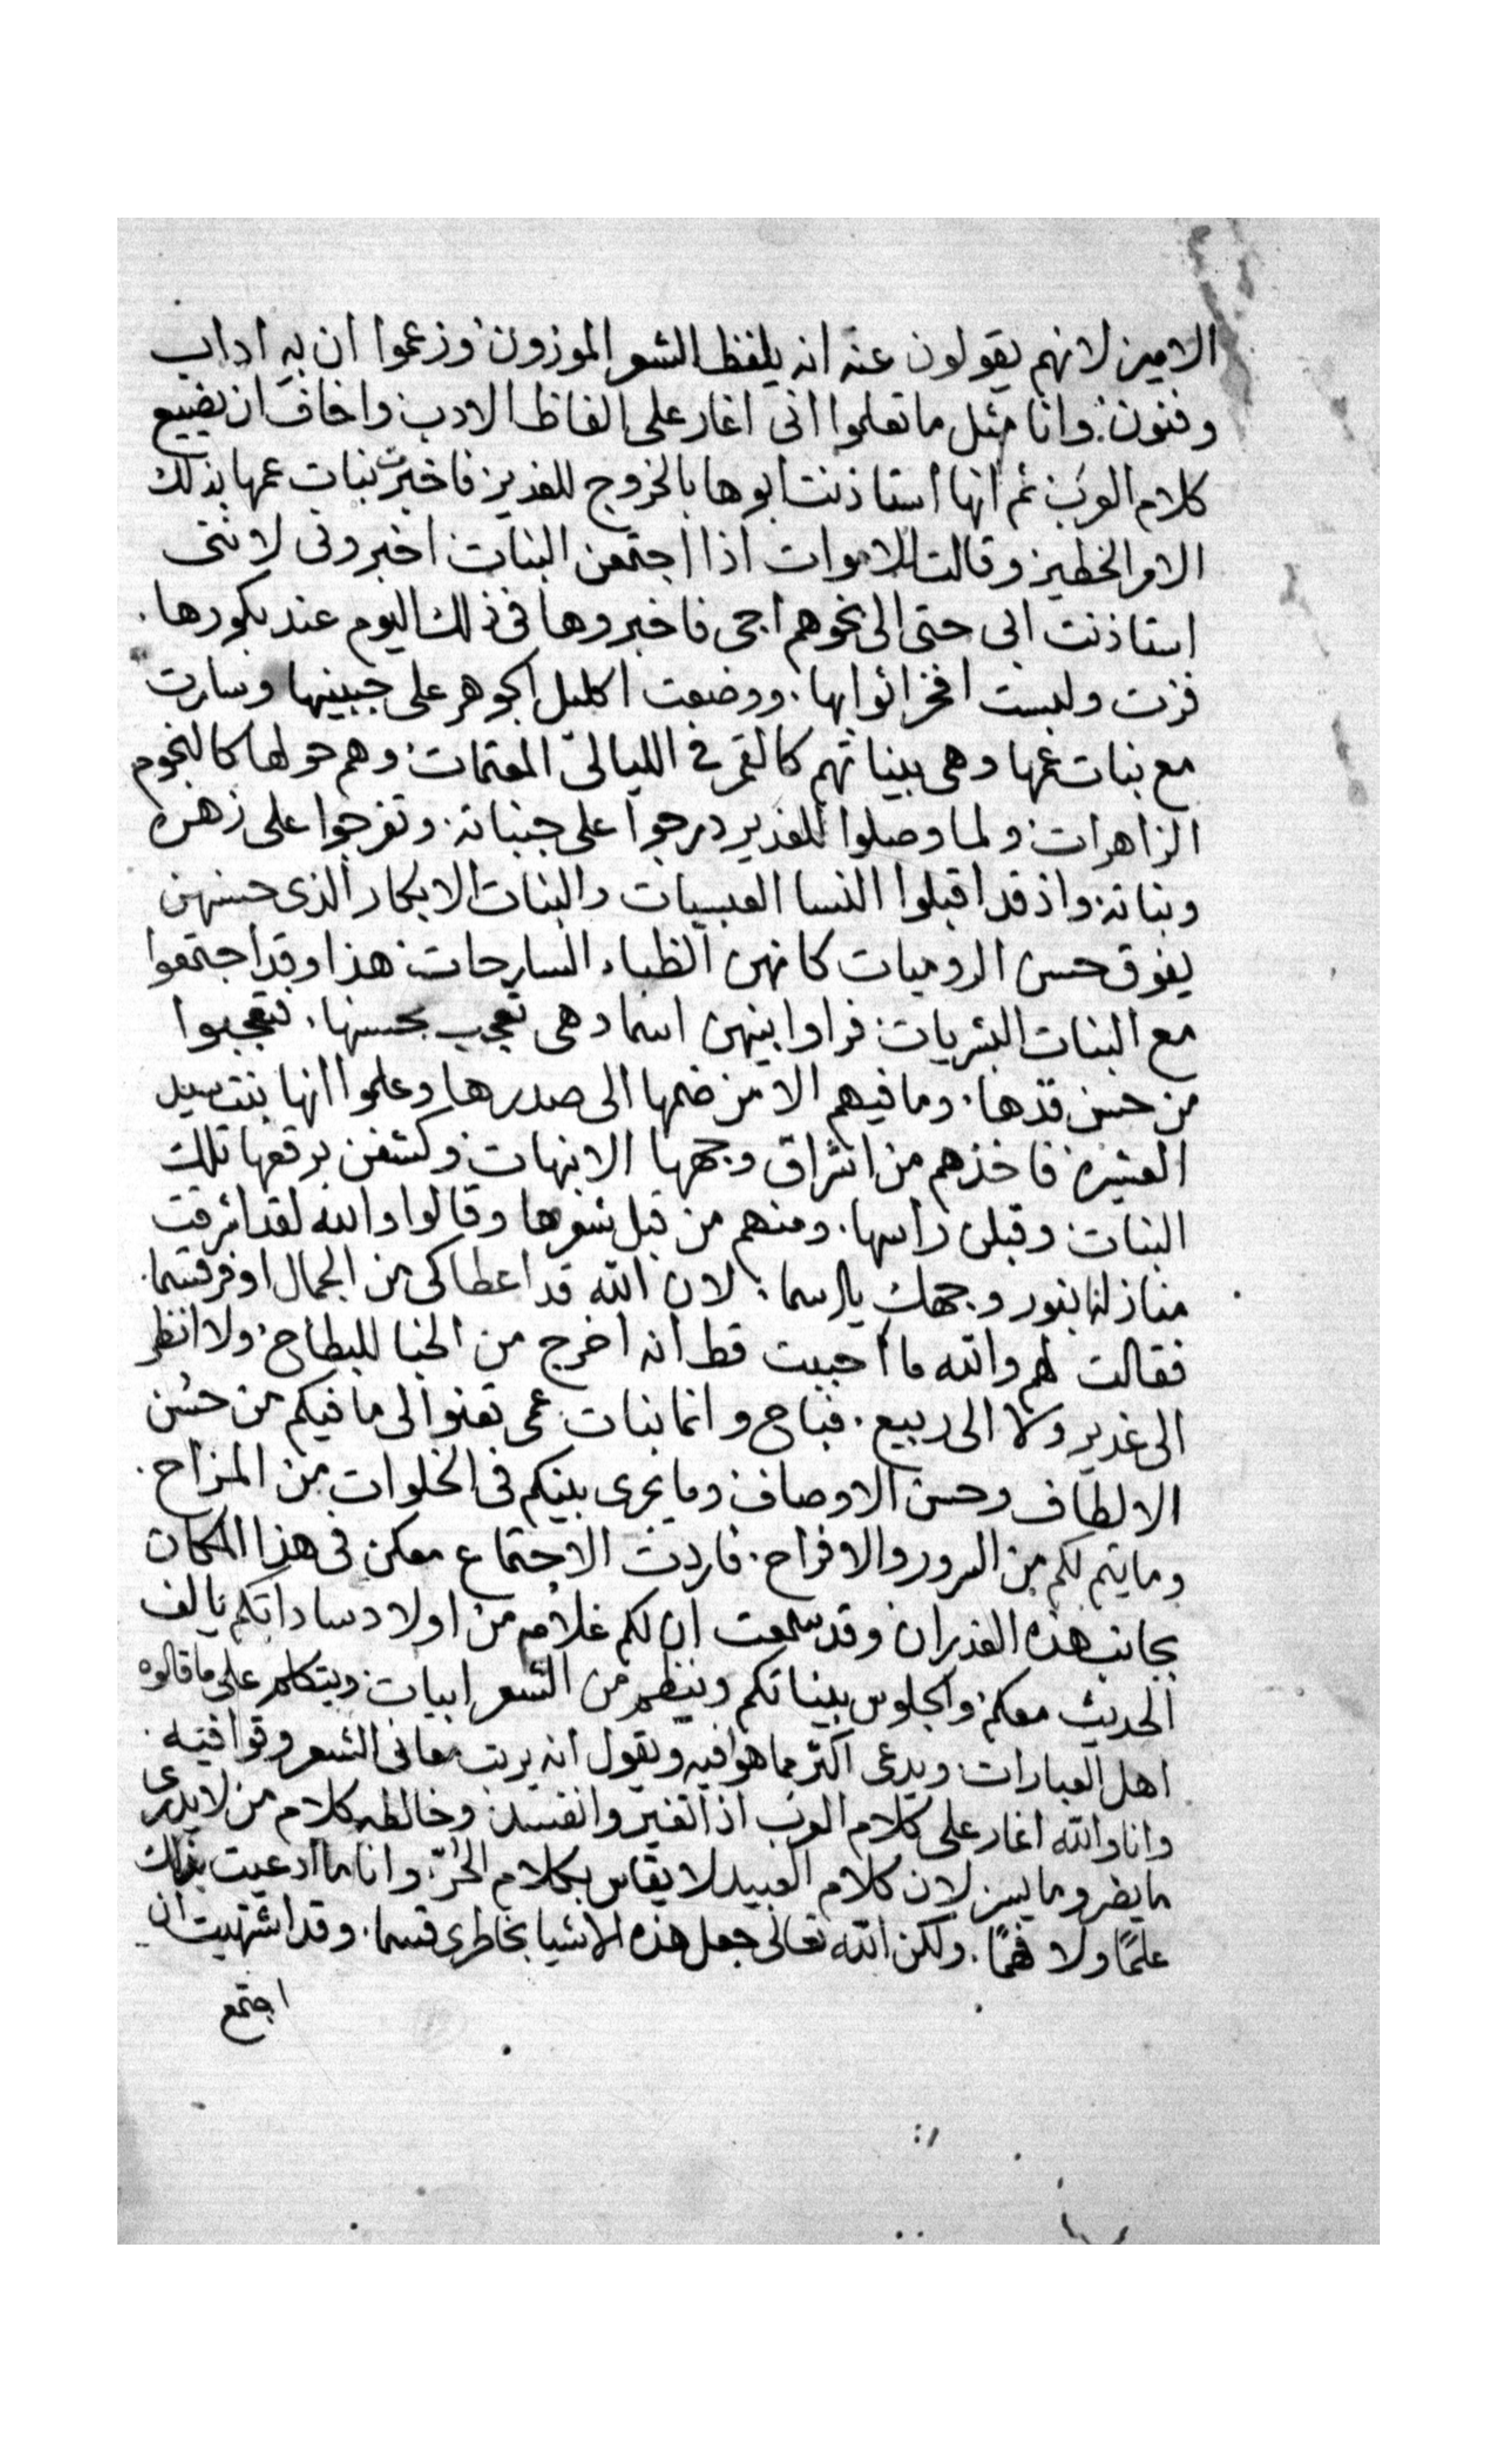 الامين لانهم يقولون عنه انه يلفظ الشعر الموزون وزعموا ان به اداب
وفنون. وانا مثل ما تعلموا انى اغار على الفاظ الادب واخاف ان يضيع
كلام العرب ثم انها استاذنت ابوها بالخروج للغدير فاخبرت بنات عمها بذلك
الامر الخطير وقالت للاموات اذا اجتمعن البنات اخبرونى لاننى
استاذنت ابى حتى الى نحوهم اجى فاخبروها فى ذلك اليوم عند بكورها.
فزت ولبست افخر اثوابها. ووضعت اكليل الجوهر على جبينها وسارت
مع بنات عمها وهى بيناتهم كالقمر فى الليالى المعتمات وهم حولها كالنجوم
الزاهرات ولما وصلوا للغدير درجوا على جنباته. وتفرجوا على زهره
ونباته واذ قد اقبلوا النسا العبسيات والبنات الابكار الذى حسنهن
يفوق حسن الروميات كانهن الظباء السارحات هذا وقد اجتمعوا
مع البنات البشريات فراوا بينهن اسما وهى تعجب بحسنها. فتعجبوا
من حسن قدها. وما فيهم الا من ضمها الى صدرها وعلموا انها بنت سيد
العشيره فاخذهم من اشراق وجهها الانبهات وكشفن برقعها تلك
البنات وقبلن راسها. ومنهم من قبل شعرها وقالوا والله لقد اشرقت
منازلنا بنور وجهك يا اسما. لان الله قد اعطاكى من الجمال اوفر قسما.
فقالت لهم والله ما احببت قط انه اخرج من الخبا للبطاح ولا انظر
الى غدير ولا الى ربيع. فباح وانما بنات عمى تعنوا لى ما فيكم من حسن
الالطاف وحسن الاوصاف وما يجرى بينكم فى الخلوات من المزاح.
وما يتم لكم من السرور والافراح. فاردت الاجتماع معكن فى هذا المكان
بجانب هذه الغدران وقد سمعت ان لكم غلام من اولاد ساداتكم يالف
الحديث معكم والجلوس بيناتكم وينظم من الشعر ابيات ويتكلم على ما قالوه
اهل العبارات ويدعى اكثر مما هوا فيه ويقول انه يرتب معانى الشعر وقوافيه.
وانا والله اغار على كلام العرب اذا تغير وانفسد وخالطه كلام من لا يدرى
ما يضر وما يسر لان كلام العبيد لا يقاس بكلام الحُرّ. وانا ما ادعيت بذلك
علمًا ولا فهمًا. ولكن الله تعالى جعل هذه الاشيا بخاطرى قسما. وقد اشتهيت ان
اجتمع